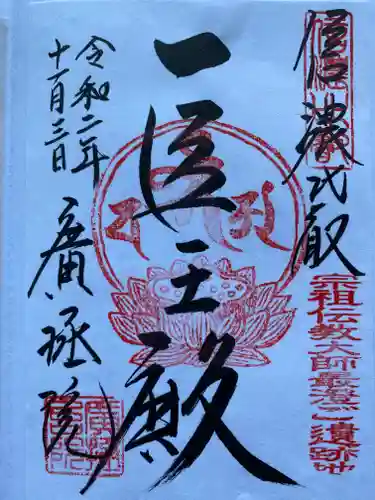 信濃比叡
宗祖伝教大師最澄ご遺跡地
医王殿
令和二年
十一月三日
廣拯院